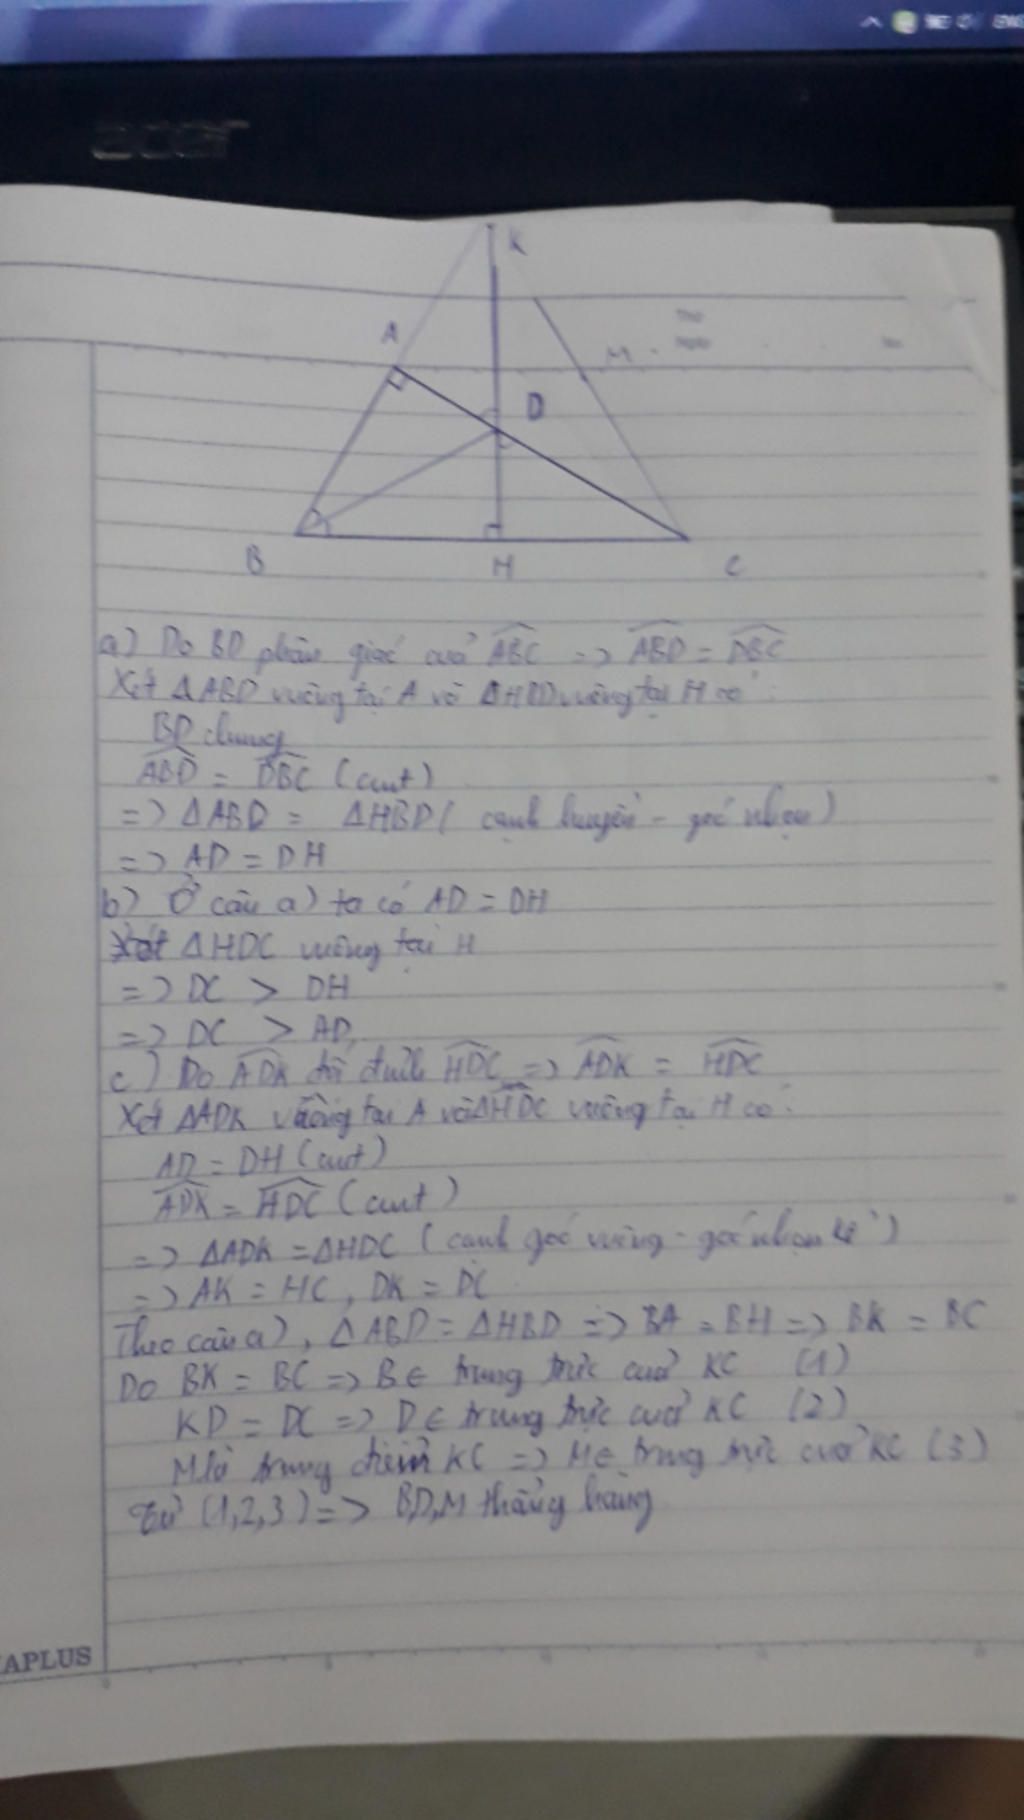 acer
K
A
M
D
B
H
C
a) Do BD phân giác của ABC => ABD = DBC
Xét ΔABD vuông tại A và ΔHBD vuông tại H có :
BD chung
ABD = DBC (cmt)
=> ΔABD = ΔHBD ( cạnh huyền - góc nhọn )
=> AD = DH
b) Ở câu a) ta có AD = DH
Xét ΔHDC vuông tại H
=> DC > DH
=> DC > AD
c) Do ADK đối đỉnh HDC => ADK = HDC
Xét ΔADK vuông tại A và ΔHDC vuông tại H có :
AD = DH (cmt)
ADK = HDC (cmt)
=> ΔADK = ΔHDC ( cạnh góc vuông - góc nhọn kề )
=> AK = HC , DK = DC
Theo câu a) , ΔABD = ΔHBD => BA = BH => BK = BC
Do BK = BC => B ∈ trung trực của KC (1)
KD = DC => D ∈ trung trực của KC (2)
M là trung điểm KC => M ∈ trung trực của KC (3)
Từ (1,2,3) => B,D,M thẳng hàng
APLUS